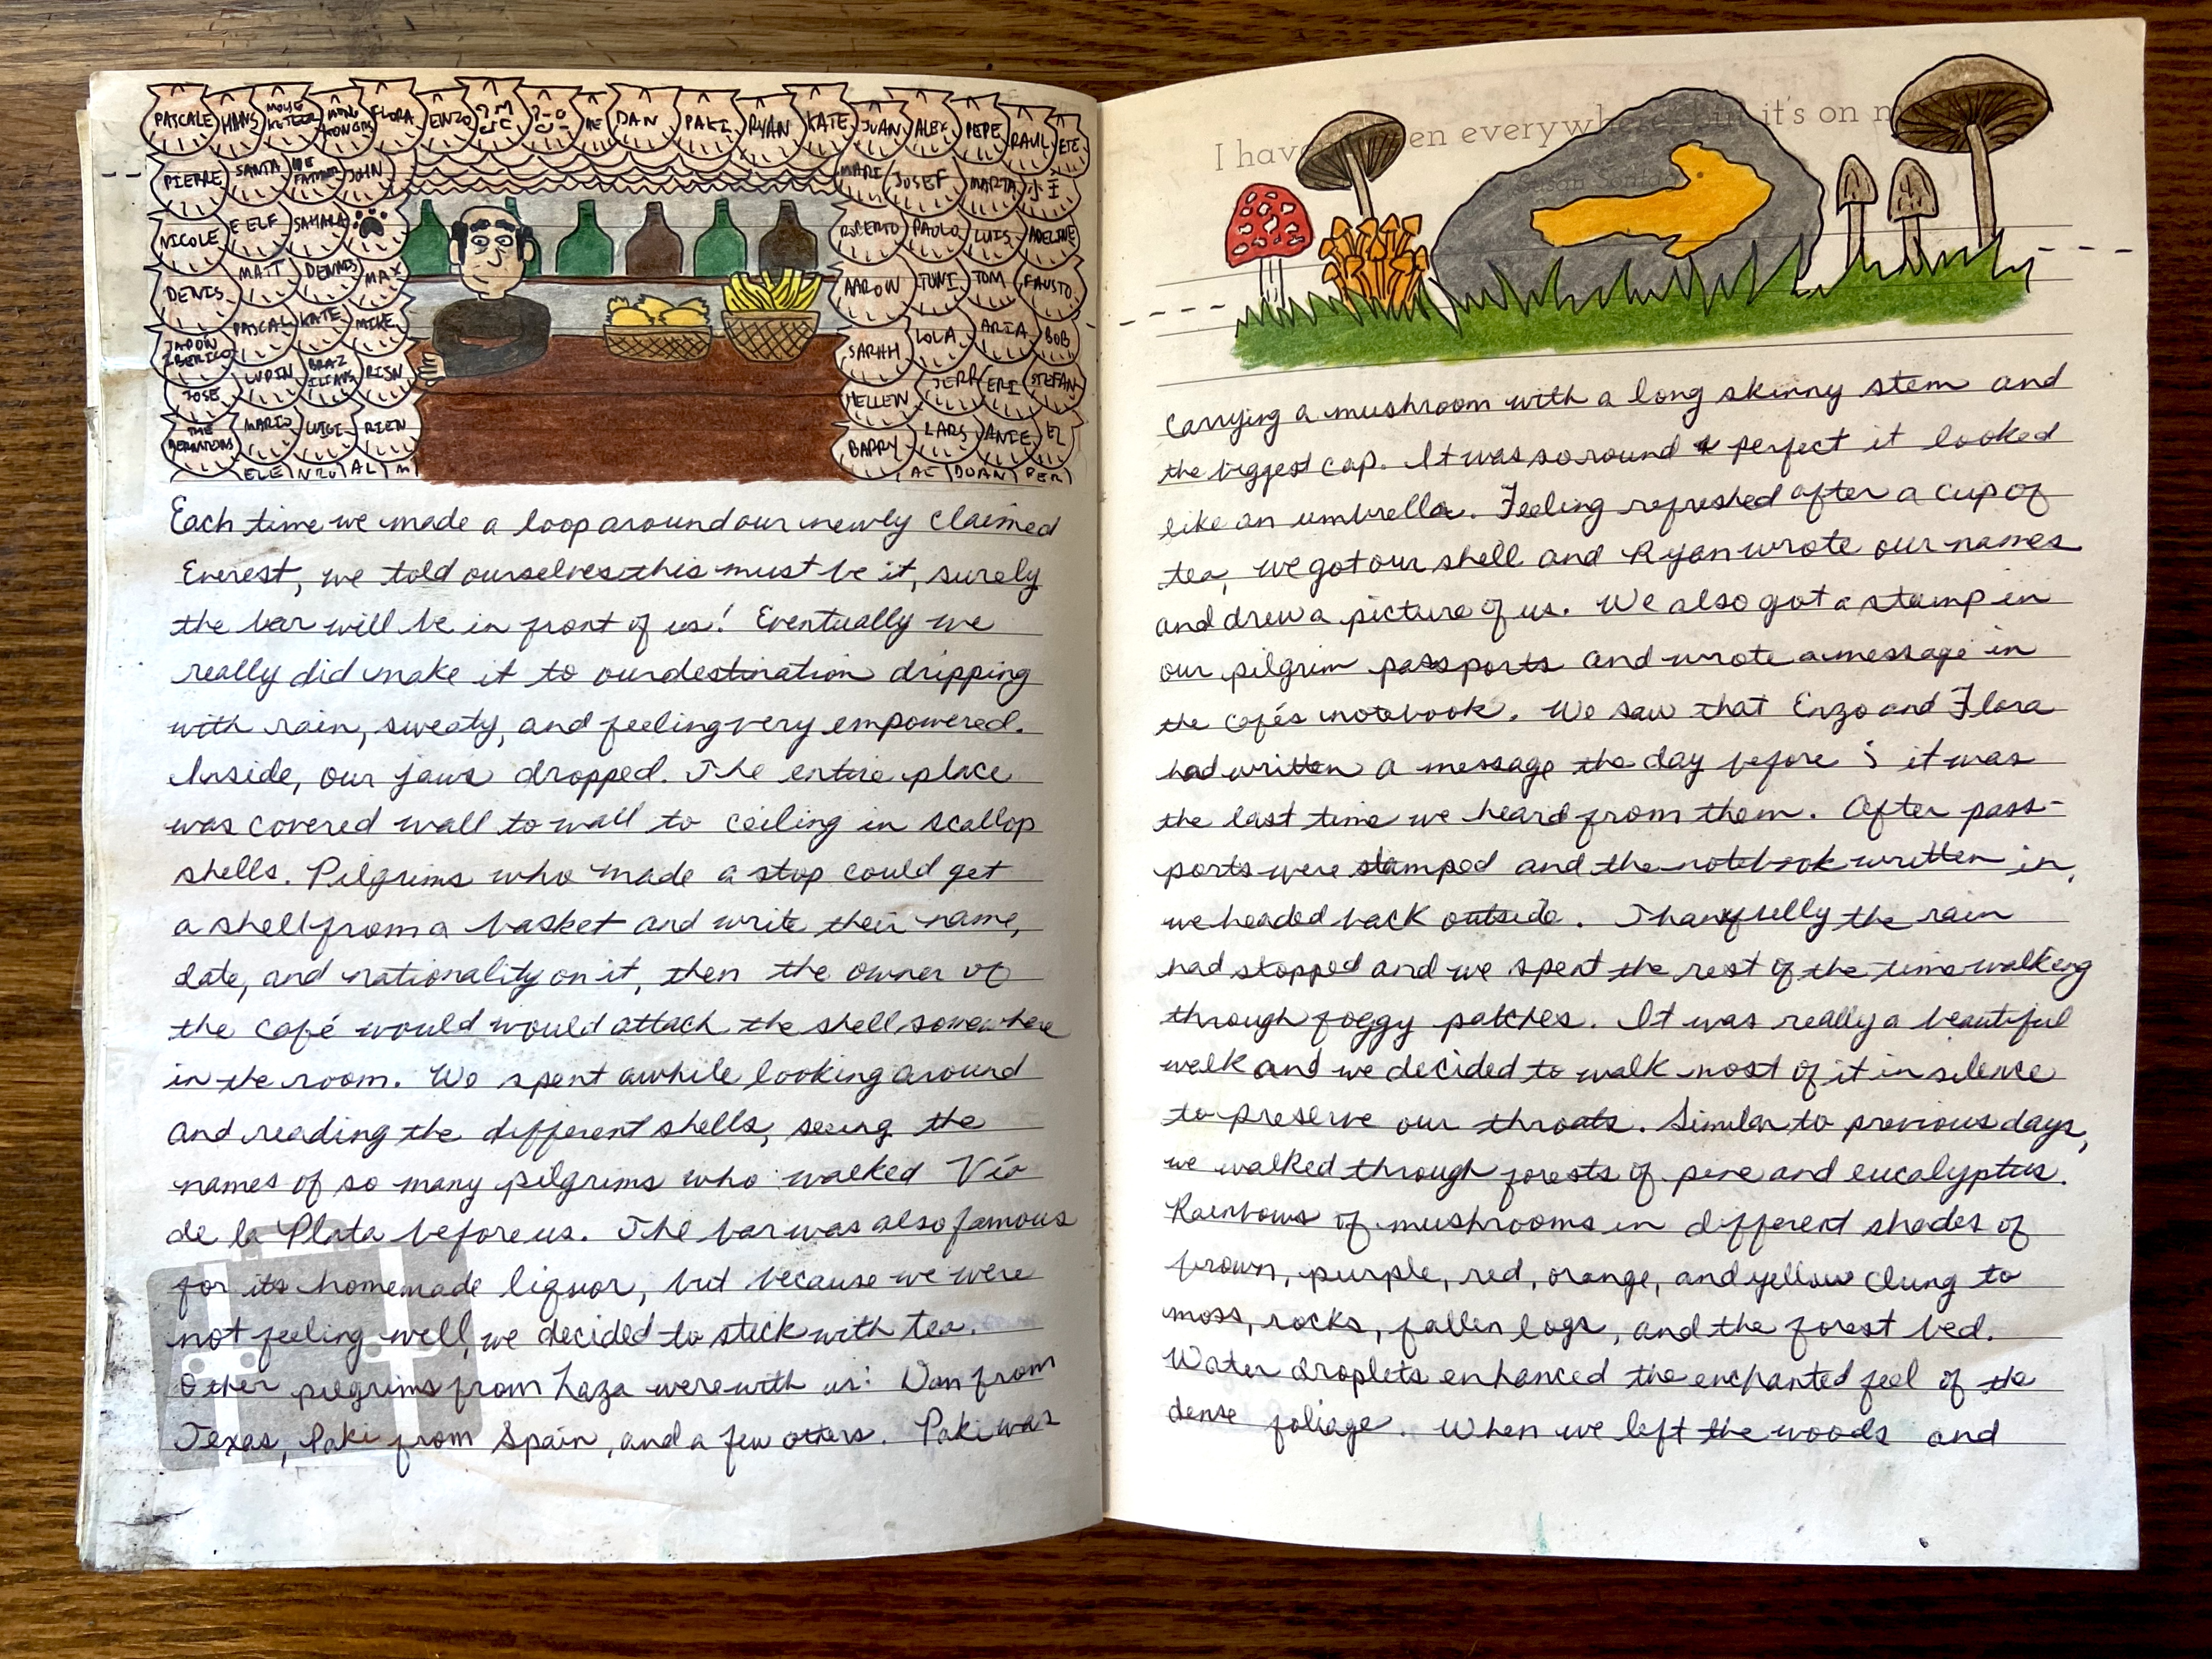 PASCALE HANS MOUSKETEER HONG KONGERS FLORA ENZO ME DAN PAKI RYAN KATE JUAN ALEX PEPE RAUL ETC
PIERRE SANTA JOHN MARI JOSEF MARTA 小王
NICOLE E ELF SAHARA ROBERTO PAOLO LUIS ADELINE
DENIS MATT DENNIS MAX AARON TONI TOM FAUSTO
JAPON IBERICO PASCAL KATE MIKE SARAH LOLA ARIA BOB
JOSE LUPIN BRAZILIANS RISN HELLEN JERR ERI STEFAN
THE MARIO LUIGI RIEN BARRY LARS ANIE EL
ELE NZO AL M AC DUAN PER
Each time we made a loop around our newly claimed
Everest, we told ourselves this must be it, surely
the bar will be in front of us! Eventually we
really did make it to our destination dripping
with rain, sweaty, and feeling very empowered.
Inside, our jaws dropped. The entire place
was covered wall to wall to ceiling in scallop
shells. Pilgrims who made a stop could get
a shell from a basket and write their name,
date, and nationality on it, then the owner of
the café would would attach the shell somewhere
in the room. We spent awhile looking around
and reading the different shells, seeing the
names of so many pilgrims who walked Vía
de la Plata before us. The bar was also famous
for its homemade liquor, but because we were
not feeling well, we decided to stick with tea.
Other pilgrims from Laza were with us: Dan from
Texas, Paki from Spain, and a few others. Paki was
I have en everywhere, but it's on m
Susan Sontag
carrying a mushroom with a long skinny stem and
the biggest cap. It was so round & perfect it looked
like an umbrella. Feeling refreshed after a cup of
tea, we got our shell and Ryan wrote our names
and drew a picture of us. We also got a stamp in
our pilgrim passports and wrote a message in
the cafés notebook. We saw that Enzo and Flora
had written a message the day before ; it was
the last time we heard from them. After pass-
ports were stamped and the notebook written in,
we headed back outside. Thankfully the rain
had stopped and we spent the rest of the time walking
through foggy patches. It was really a beautiful
walk and we decided to walk most of it in silence
to preserve our throats. Similar to previous days,
we walked through forests of pine and eucalyptus.
Rainbows of mushrooms in different shades of
brown, purple, red, orange, and yellow clung to
moss, rocks, fallen logs, and the forest bed.
Water droplets enhanced the enchanted feel of the
dense foliage. When we left the woods and